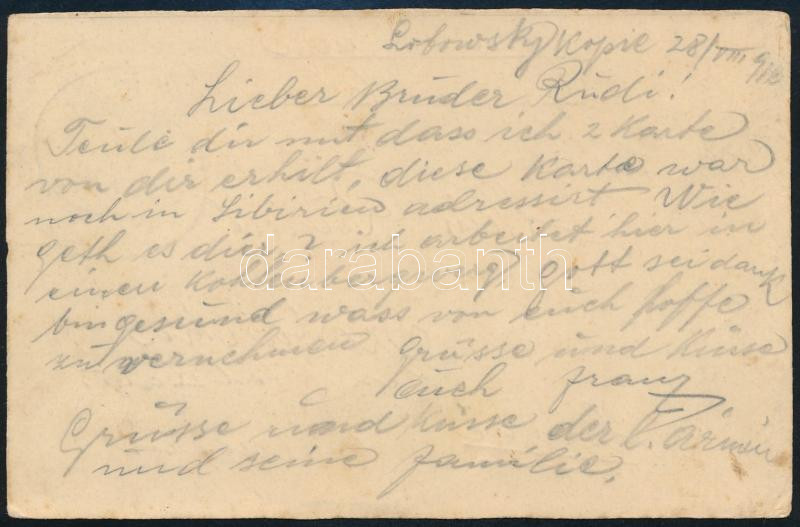 Lobowsky Kopie 28/VIII 916
Lieber Bruder Rudi!
Teule dir mit dass ich 2 Karte
von dir erhilt, diese Karte war
noch in Sibirien adressist Wie
geth es dir? ich arbeitet hier in
einen Kohlenbergwerg Gott sei dank
bin gesund wass von Euch hoffe
zu vernehmen Grüsse und Küsse
Euch Franz
Grüsse und Küsse der l. Armin
und seine Familie.
darabanth